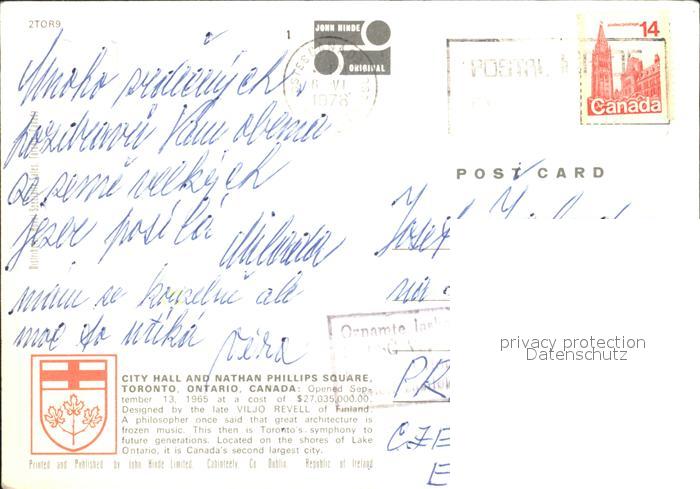 2TOR9
1
JOHN HINDE
ORIGINAL
VI
1978
POSTAL
postage postes
14
Canada
POST CARD
Mnoho srdečných
pozdravů Vám oběma
ze země velkých
jezer posílá Milada
mám se kouzelně ale
moc to utíká Věra
Josef
na
PR
CZE
E
Oznamte
privacy protection
Datenschutz
CITY HALL AND NATHAN PHILLIPS SQUARE,
TORONTO, ONTARIO, CANADA: Opened Sep-
tember 13, 1965 at a cost of $27,035,000.00.
Designed by the late VILJO REVELL of Finland.
A philosopher once said that great architecture is
frozen music. This then is Toronto's symphony to
future generations. Located on the shores of Lake
Ontario, it is Canada's second largest city.
Printed and Published by John Hinde Limited, Cabinteely Co Dublin, Republic of Ireland